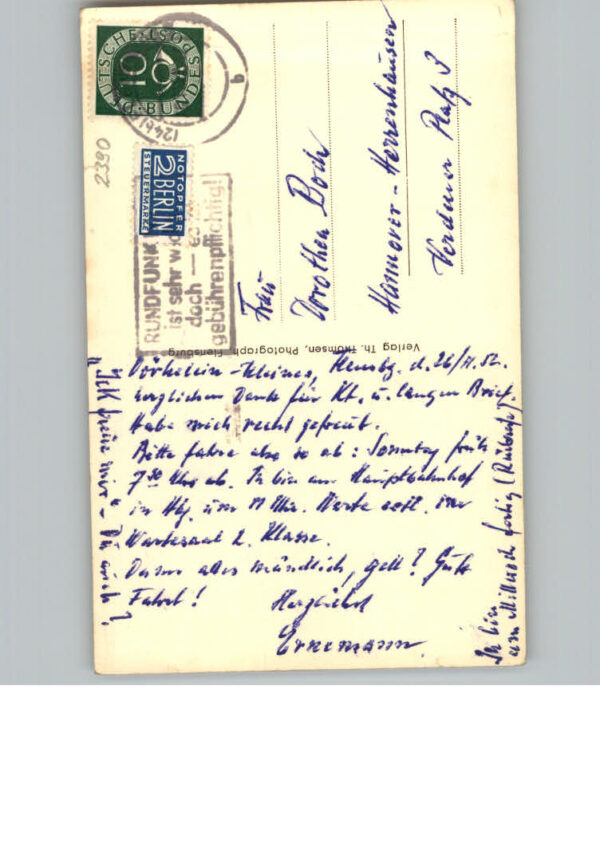 DEUTSCHE BUNDESPOST
10
(24b)
9
2390
NOTOPFER
2 BERLIN
STEUERMARKE
RUNDFUNK
ist sehr
doch —
gebührenpflichtig!
Frau
Dorothea Boch
Hannover-Herrenhäusen
Verdener Platz 3
Verlag Th. Thomsen, Photograph, Flensburg
Flensbg. d. 26/11.52.
herzlichen Dank für Kt. u. langen Brief.
Habe mich recht gefreut.
Bitte fahre also so ab: Sonntag früh
7³⁰ Uhr ab. Ich bin am Hauptbahnhof
in Hbg. um 11 Uhr. Warte evtl. im
Wartesaal 2. Klasse.
Dann alles mündlich, gell? Gute
Fahrt! Herzlichst
Ernemann.
"Ick freue mir" - Du auch?
Ich bin
am Mittwoch fertig